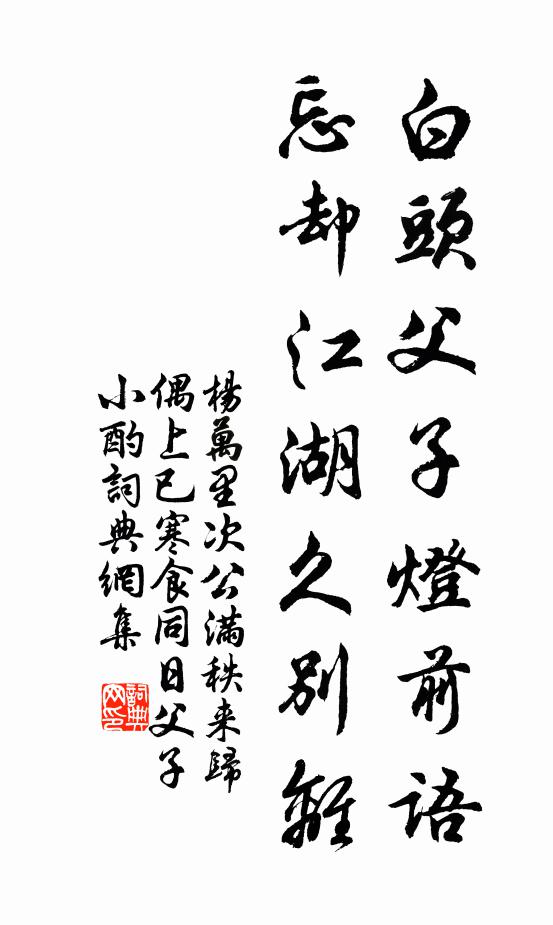 白頭父子燈前語
忘却江湖久別離
楊萬里次公滿秩来歸
偶上巳寒食同日父子
小酌詞典網集
詞典
网印